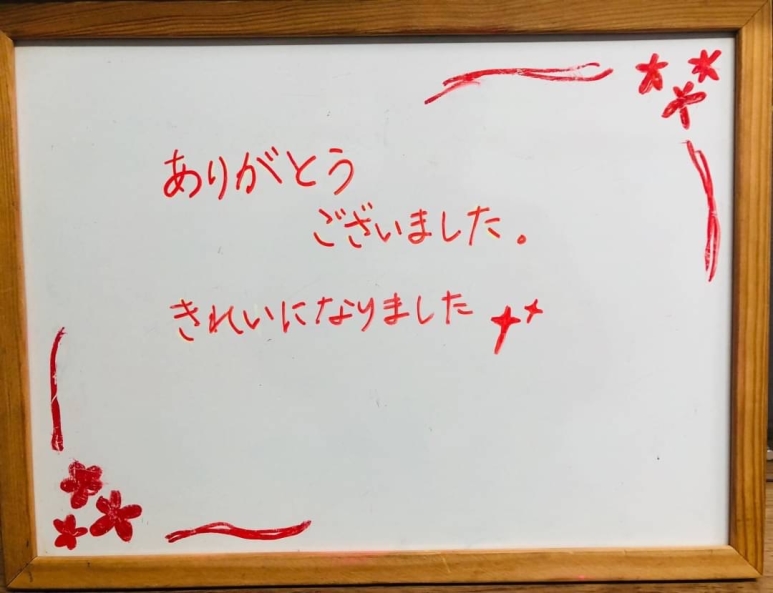 ありがとう
ございました。
きれいになりました